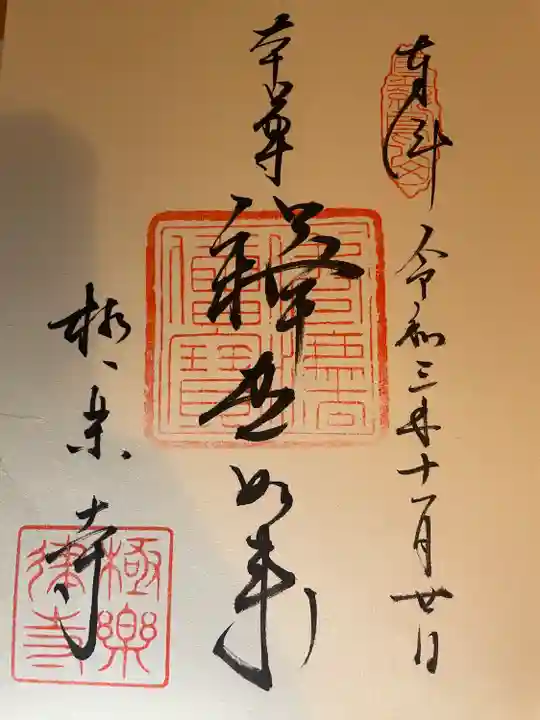 奉拝
令和三年十一月廿日
本尊
釋迦如来
極楽寺
極樂律寺